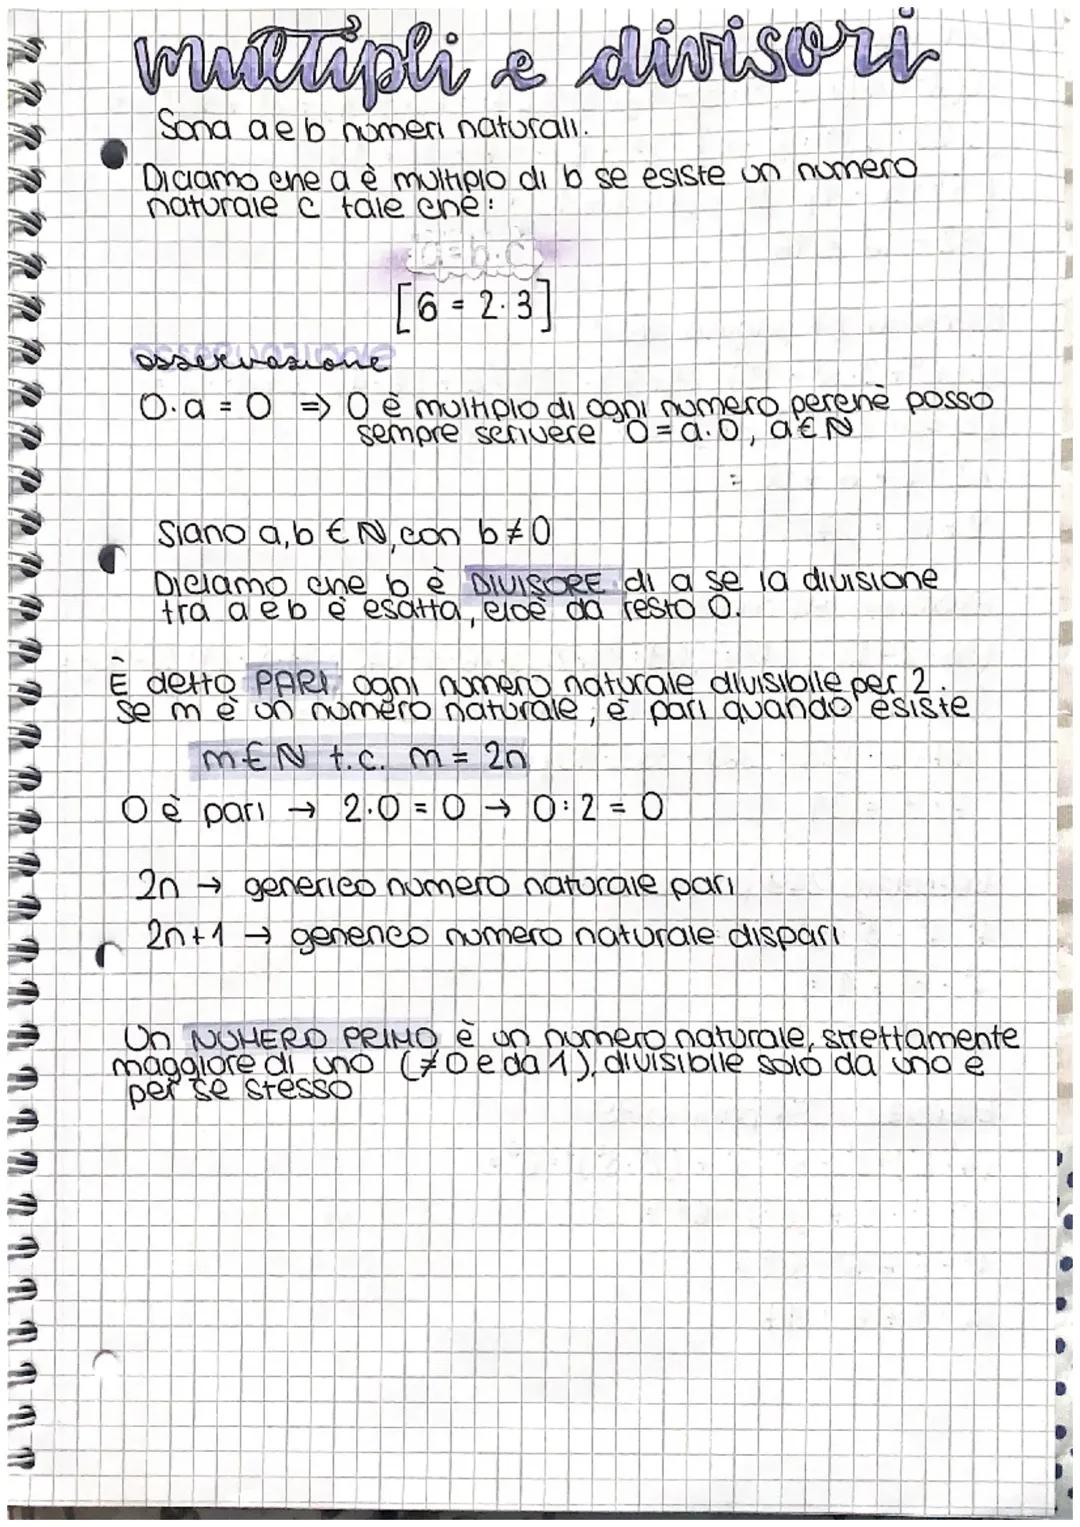 multipli e divisori
Sono a e b numeri naturali.
Diciamo che a è multiplo di b se esiste un numero
naturale c tale che:
a=b·c
[6 = 2·3]
osservazione
0·a = 0 => 0 è multiplo di ogni numero perchè posso
sempre scrivere 0=a·0, a∈N
Siano a,b ∈ N, con b≠0
Diciamo che b è DIVISORE di a se la divisione
tra a e b è esatta, cioè da resto 0.
È detto PARI ogni numero naturale divisibile per 2.
Se m è un numero naturale, è pari quando esiste
m∈N t.c. m = 2n
0 è pari → 2·0 = 0 → 0:2 = 0
2n → generico numero naturale pari
2n+1 → generico numero naturale dispari
Un NUMERO PRIMO è un numero naturale, strettamente
maggiore di uno (≠0 e da 1), divisibile solo da uno e
per se stesso